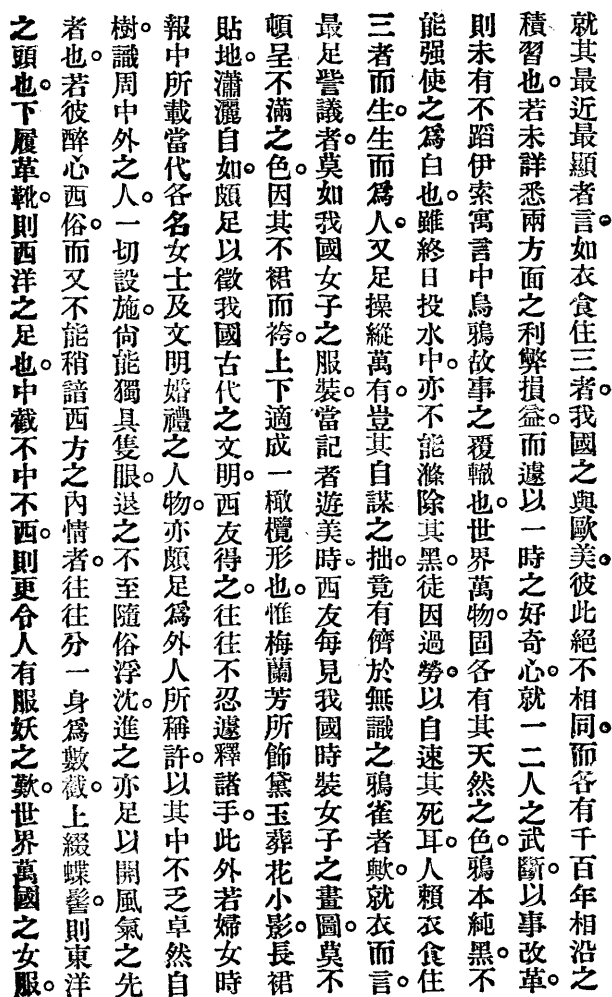 就其最近最顯者言。如衣食住三者。我國之與歐美。彼此絕不相同。而各有千百年相沿之
積習也。若未詳悉兩方面之利弊損益。而遽以一時之好奇心。就一二人之武斷。以事改革。
則未有不蹈伊索寓言中烏鴉故事之覆轍也。世界萬物。固各有其天然之色。鴉本純黑。不
能强使之爲白也。雖終日投水中。亦不能滌除其黑。徒因過勞。以自速其死耳。人賴衣食住
三者而生。生而爲人。又足操縱萬有。豈其自謀之拙。竟有儕於無識之鴉雀者歟。就衣而言。
最足訾議者。莫如我國女子之服裝。當記者遊美時。西友每見我國時裝女子之畫圖。莫不
頓呈不滿之色。因其不裙而袴。上下適成一橄欖形也。惟梅蘭芳所飾黛玉葬花小影。長裙
貼地。瀟灑自如。頗足以徵我國古代之文明。西友得之。往往不忍遽釋諸手。此外若婦女時
報中所載當代各名女士及文明婚禮之人物。亦頗足爲外人所稱許。以其中不乏卓然自
樹。識周中外之人。一切設施。尙能獨具隻眼。退之不至隨俗浮沈。進之亦足以開風氣之先
者也。若彼醉心西俗。而又不能稍諳西方之內情者。往往分一身爲數截。上綴蝶髻。則東洋
之頭也。下履革靴。則西洋之足也。中截不中不西。則更令人有服妖之歎。世界萬國之女服。